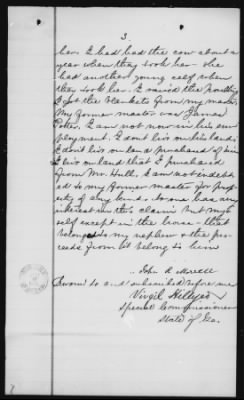 3
her. I had had the cow about a
year when they took her. She
had another young calf when
they took her. I raised the poultry
I got the blankets from my master
My former master was James
Potter. I am not now in his em
ployment. I dont live on his land,
I dont live on land purchased of him
I live on land that I purchased
from Mr. Hull. I am not indebt
ed to my former master for prop
erty of any kind. No one has any
interest in this claim but my
self except in the horse - that
belonged to my nephew & the pro
ceeds from it belong to him
John R
Sworn to and subscribed before me
Virgil Hillyer
Special Commissioner
State of Ga.